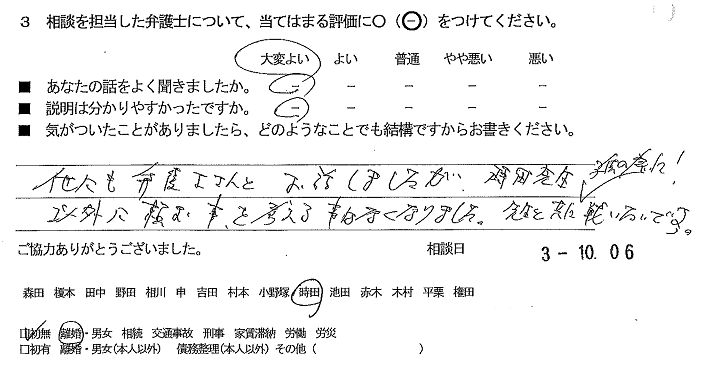 3 相談を担当した弁護士について、当てはまる評価に○（⊖）をつけてください。
大変よい よい 普通 やや悪い 悪い
■ あなたの話をよく聞きましたか。 − − − − −
■ 説明は分かりやすかったですか。 − − − − −
■ 気がついたことがありましたら、どのようなことでも結構ですからお書きください。
他にも弁護士さんとお話しましたが、時田先生
以外に頼む事を考える事はなくなりました。先生と共に戦いたいです。
ご協力ありがとうございました。 相談日 3-10.06
森田 榎本 田中 野田 相川 申 吉田 村本 小野塚 時田 池田 赤木 木村 平栗 権田
□初無 離婚・男女 相続 交通事故 刑事 家賃滞納 労働 労災
□初有 離婚・男女(本人以外) 債務整理(本人以外) その他 ( )